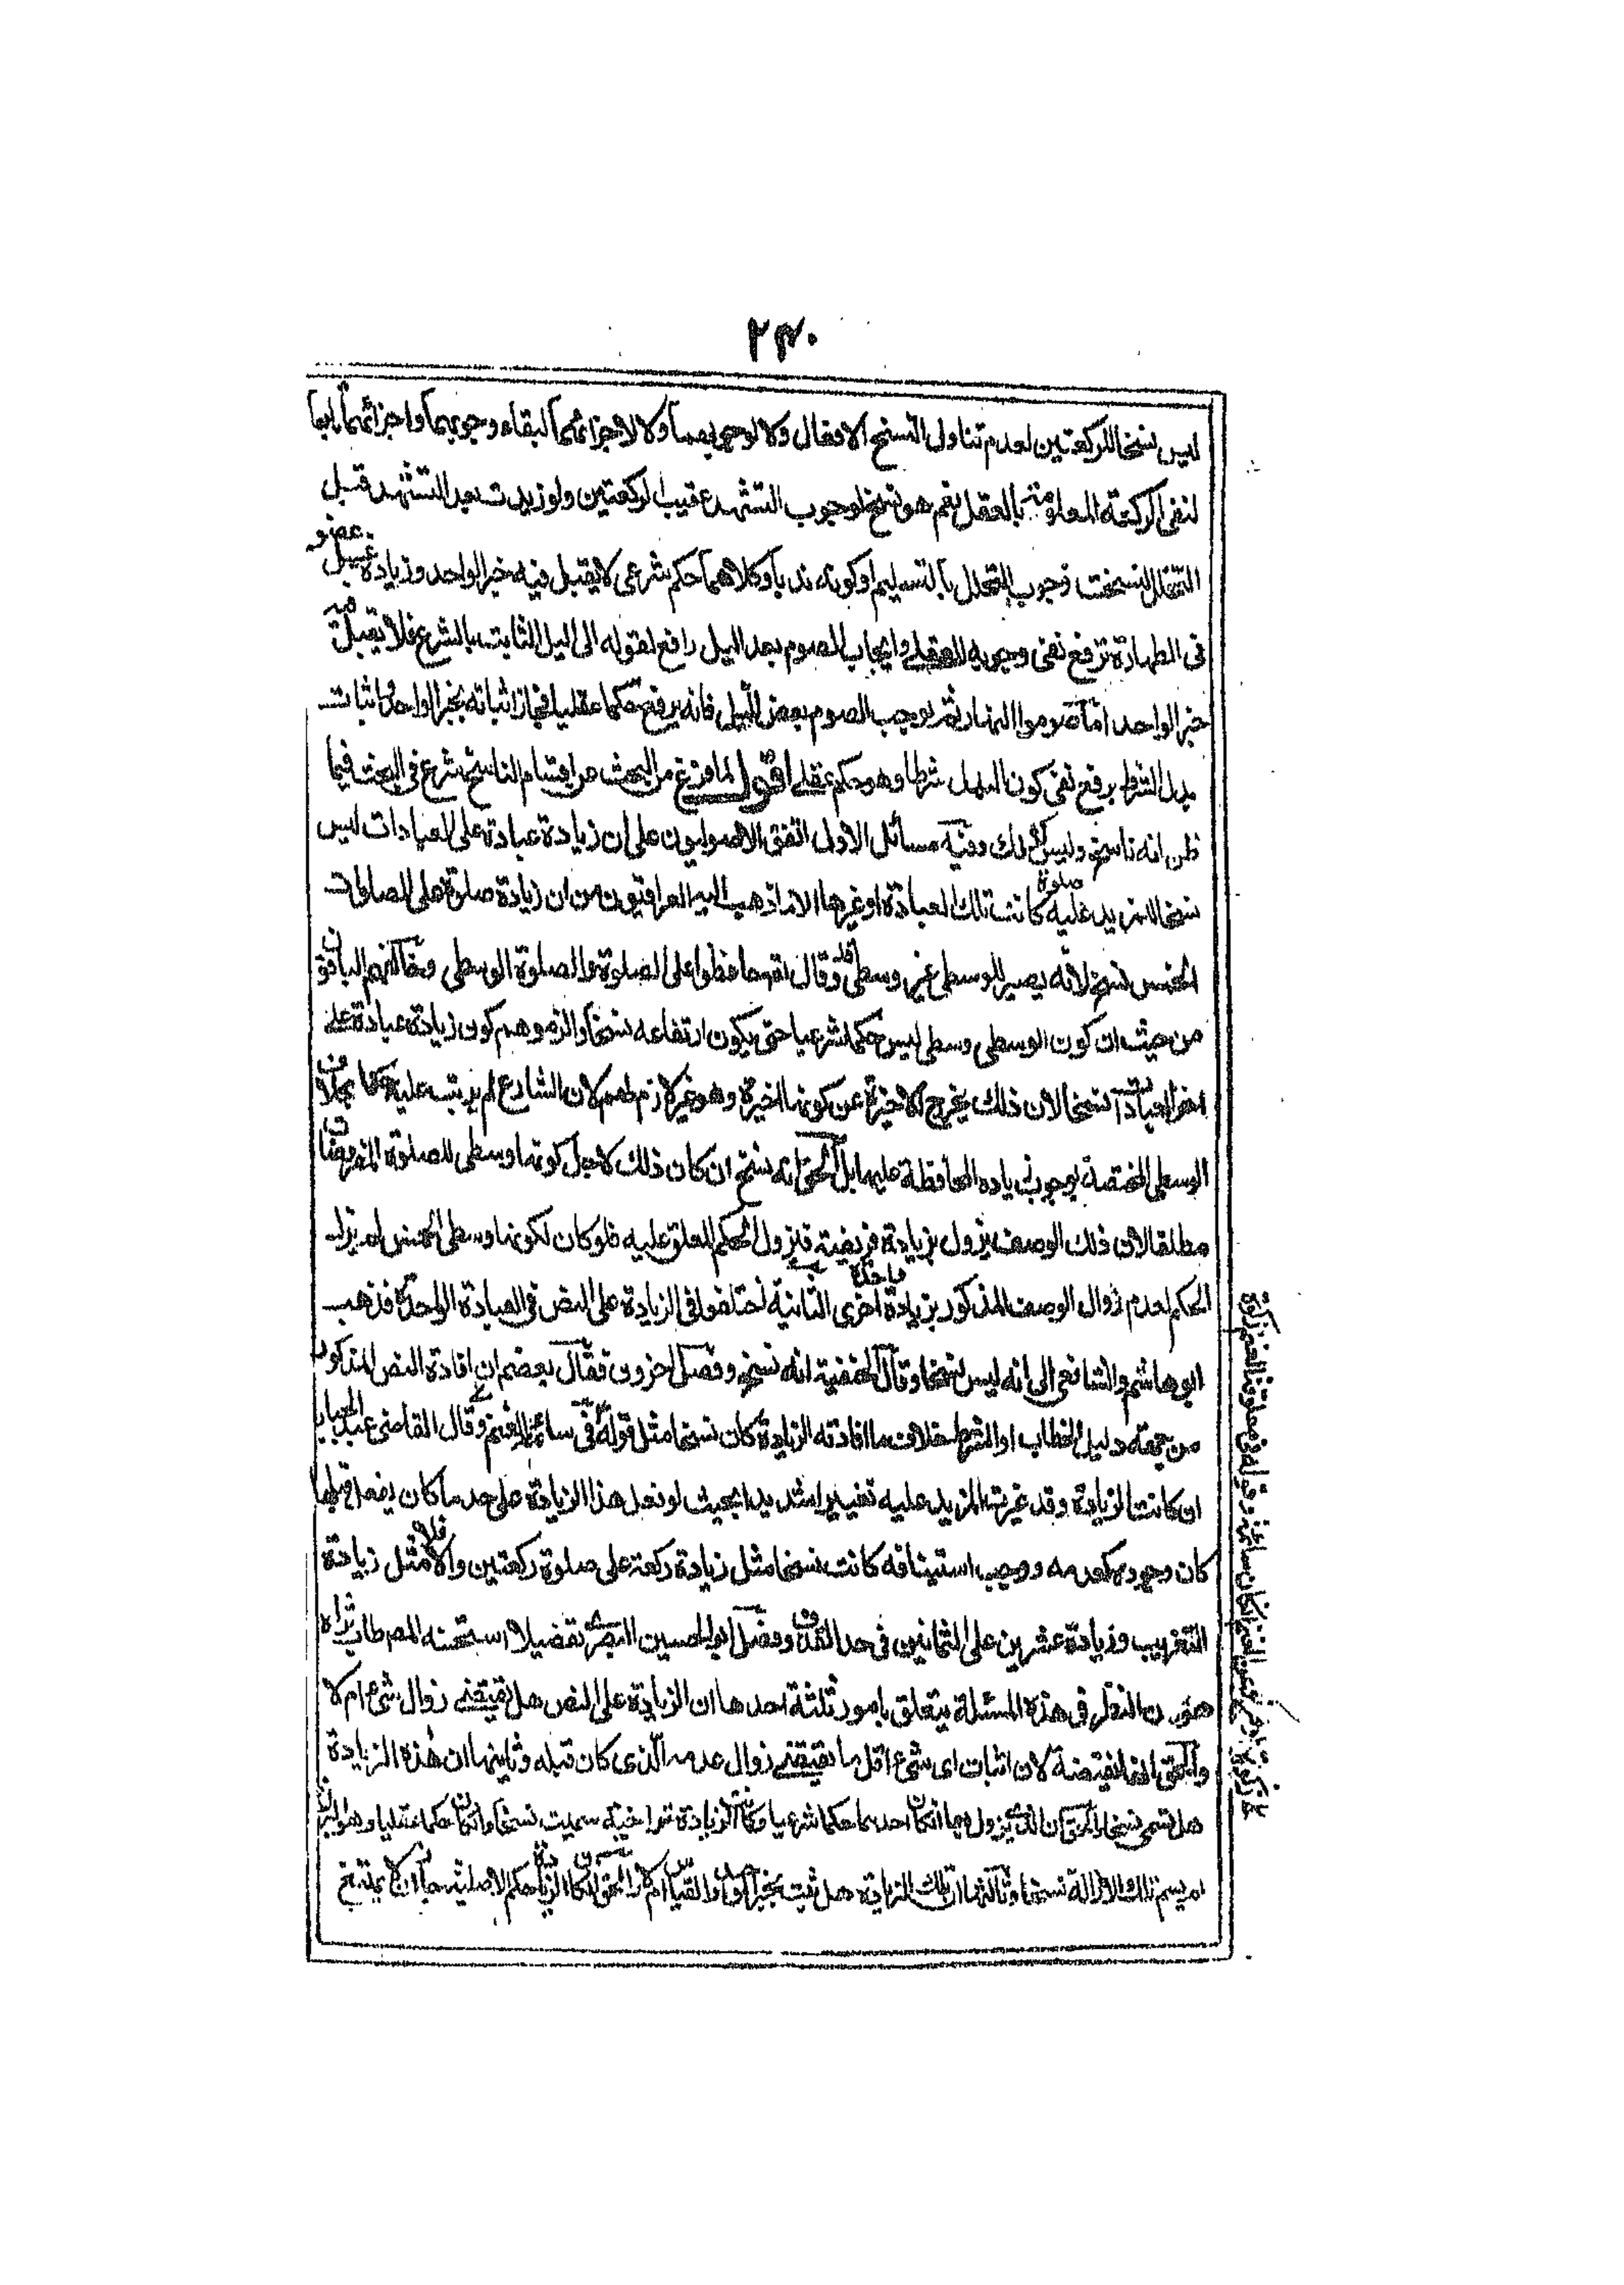 ٢٣٠
ليس نسخا للركعتين لعدم تناول النسخ الافعال ولا لوجوبهما ولا لاجزائهما لبقاء وجوبهما واجزائهما
لنفى الركعة المعلومة بالعقل نعم هو نسخ لوجوب التشهد عقيب الركعتين ولو زيدت بعد التشهد قبل
التحلل لنسخت وجوب التحلل بالتسليم او كونه ندبا وكلاهما حكم شرعى لا يقبل فيه خبر الواحد وزيادة غسل عضو
فى الطهارة ترفع نفى وجوبه العقلى وايجاب الصوم بعد الليل رافع لقوله الى الليل الثابت بالشرع فلا يقبل فيه
خبر الواحد اما صوموا النهار ثم يوجب الصوم بعض الليل فانه يرفع حكما عقليا فجاز اثباته بخبر الواحد واثبات
بدل الشرط يرفع نفى كون البدل شرطا وهو حكم عقلى اقول لما فرغ من البحث عن اقسام الناسخ شرع فى البحث فيما
ظن انه ناسخ وليس كذلك وفيه مسائل الاولى اتفق الاصوليون على ان زيادة عبادة على العبادات ليس
نسخا للمزيد عليه صلوة كانت تلك العبادة او غيرها الا ما ذهب اليه العراقيون من ان زيادة صلوة على الصلوات
الخمس نسخ لانه يصير الوسطى غير وسطى وقال تع حافظوا على الصلوة والصلوة الوسطى وخالفهم الباقون
من حيث ان كون الوسطى وسطى ليس حكما شرعيا حتى يكون ارتفاعه نسخا والزموهم كون زيادة عبادة على
اخر العبادات نسخا لان ذلك يخرج الاخيرة عن كونها اخيرة وهو غير لازم لهم لان الشارع لم يرتب عليه حكما بخلاف
الوسطى المختصة بوجوب زيادة المحافظة عليها بل الحق انه نسخ ان كان ذلك لاجل كونها وسطى للصلوة المفروضات
مطلقا لان ذلك الوصف يزول بزيادة فريضة فيزول الحكم المعلق عليه فلو كان لكونها وسطى الخمس لم يزل
الحكم لعدم زوال الوصف المذكور بزيادة واحدة اخرى الثانية اختلفوا فى الزيادة على النص فى العبادة الواحدة فذهب
ابو هاشم والشافعى الى انه ليس نسخا وقال الحنفية انه نسخ وفصل اخرون فقال بعضهم ان افادة النص المذكور
من جهة دليل الخطاب او الشرط خلاف ما افادته الزيادة كان نسخا مثل قوله فى سائمة الغنم وقال القاضى عبد الجبار
ان كانت الزيادة وقد غيرت المزيد عليه تغييرا شديدا بحيث لو فعل هذا الزيادة على حد ما كان يفعل قبلها
كان وجوده كعدمه ووجب استينافه كانت نسخا مثل زيادة ركعة على صلوة ركعتين والا فلا مثل زيادة
التغريب وزيادة عشرين على الثمانين فى حد القذف وفصل ابو الحسين البصرى تفصيلا استحسنه المص طاب ثراه
هو ان النظر فى هذه المسئلة يتعلق بامور ثلثة احدها ان الزيادة على النص هل يقتضى زوال شىء ام لا
والحق انها يقتضيه لان اثبات اى شىء اقل ما يقتضى زوال عدمه الذى كان قبله وثانيها ان هذه الزيادة
هل تسمى نسخا والحق ان الذى يزول بها ان كان احدهما حكما شرعيا وكانت الزيادة متراخية سميت نسخا وان كان حكما عقليا وهو البراءة
لم يسم تلك الازالة نسخا وثالثها ان تلك الزيادة هل تثبت بخبر الواحد والقياس ام لا والحق ان كان الزيادة حكم الاصلية جاز ان لا يمتنع